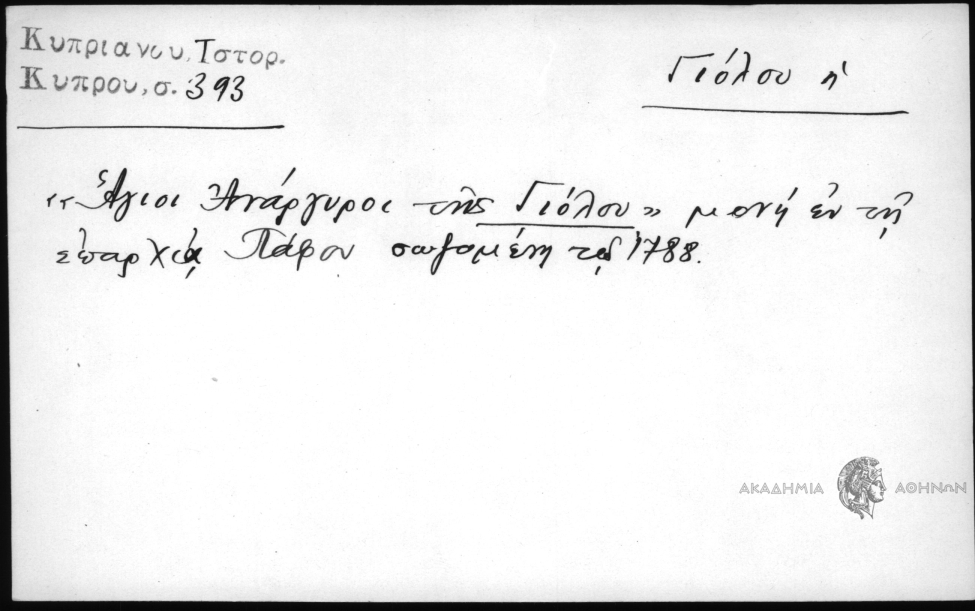 Κυπριανου, Ιστορ.
Κυπρου, σ. 393
Γιόλου ἡ
«Ἅγιοι Ἀνάργυροι τῆς Γιόλου» μονή ἐν τῇ
ἐπαρχίᾳ Πάφου σωζομένη τῷ 1788.
ΑΚΑΔΗΜΙΑ ΑΘΗΝΩΝ